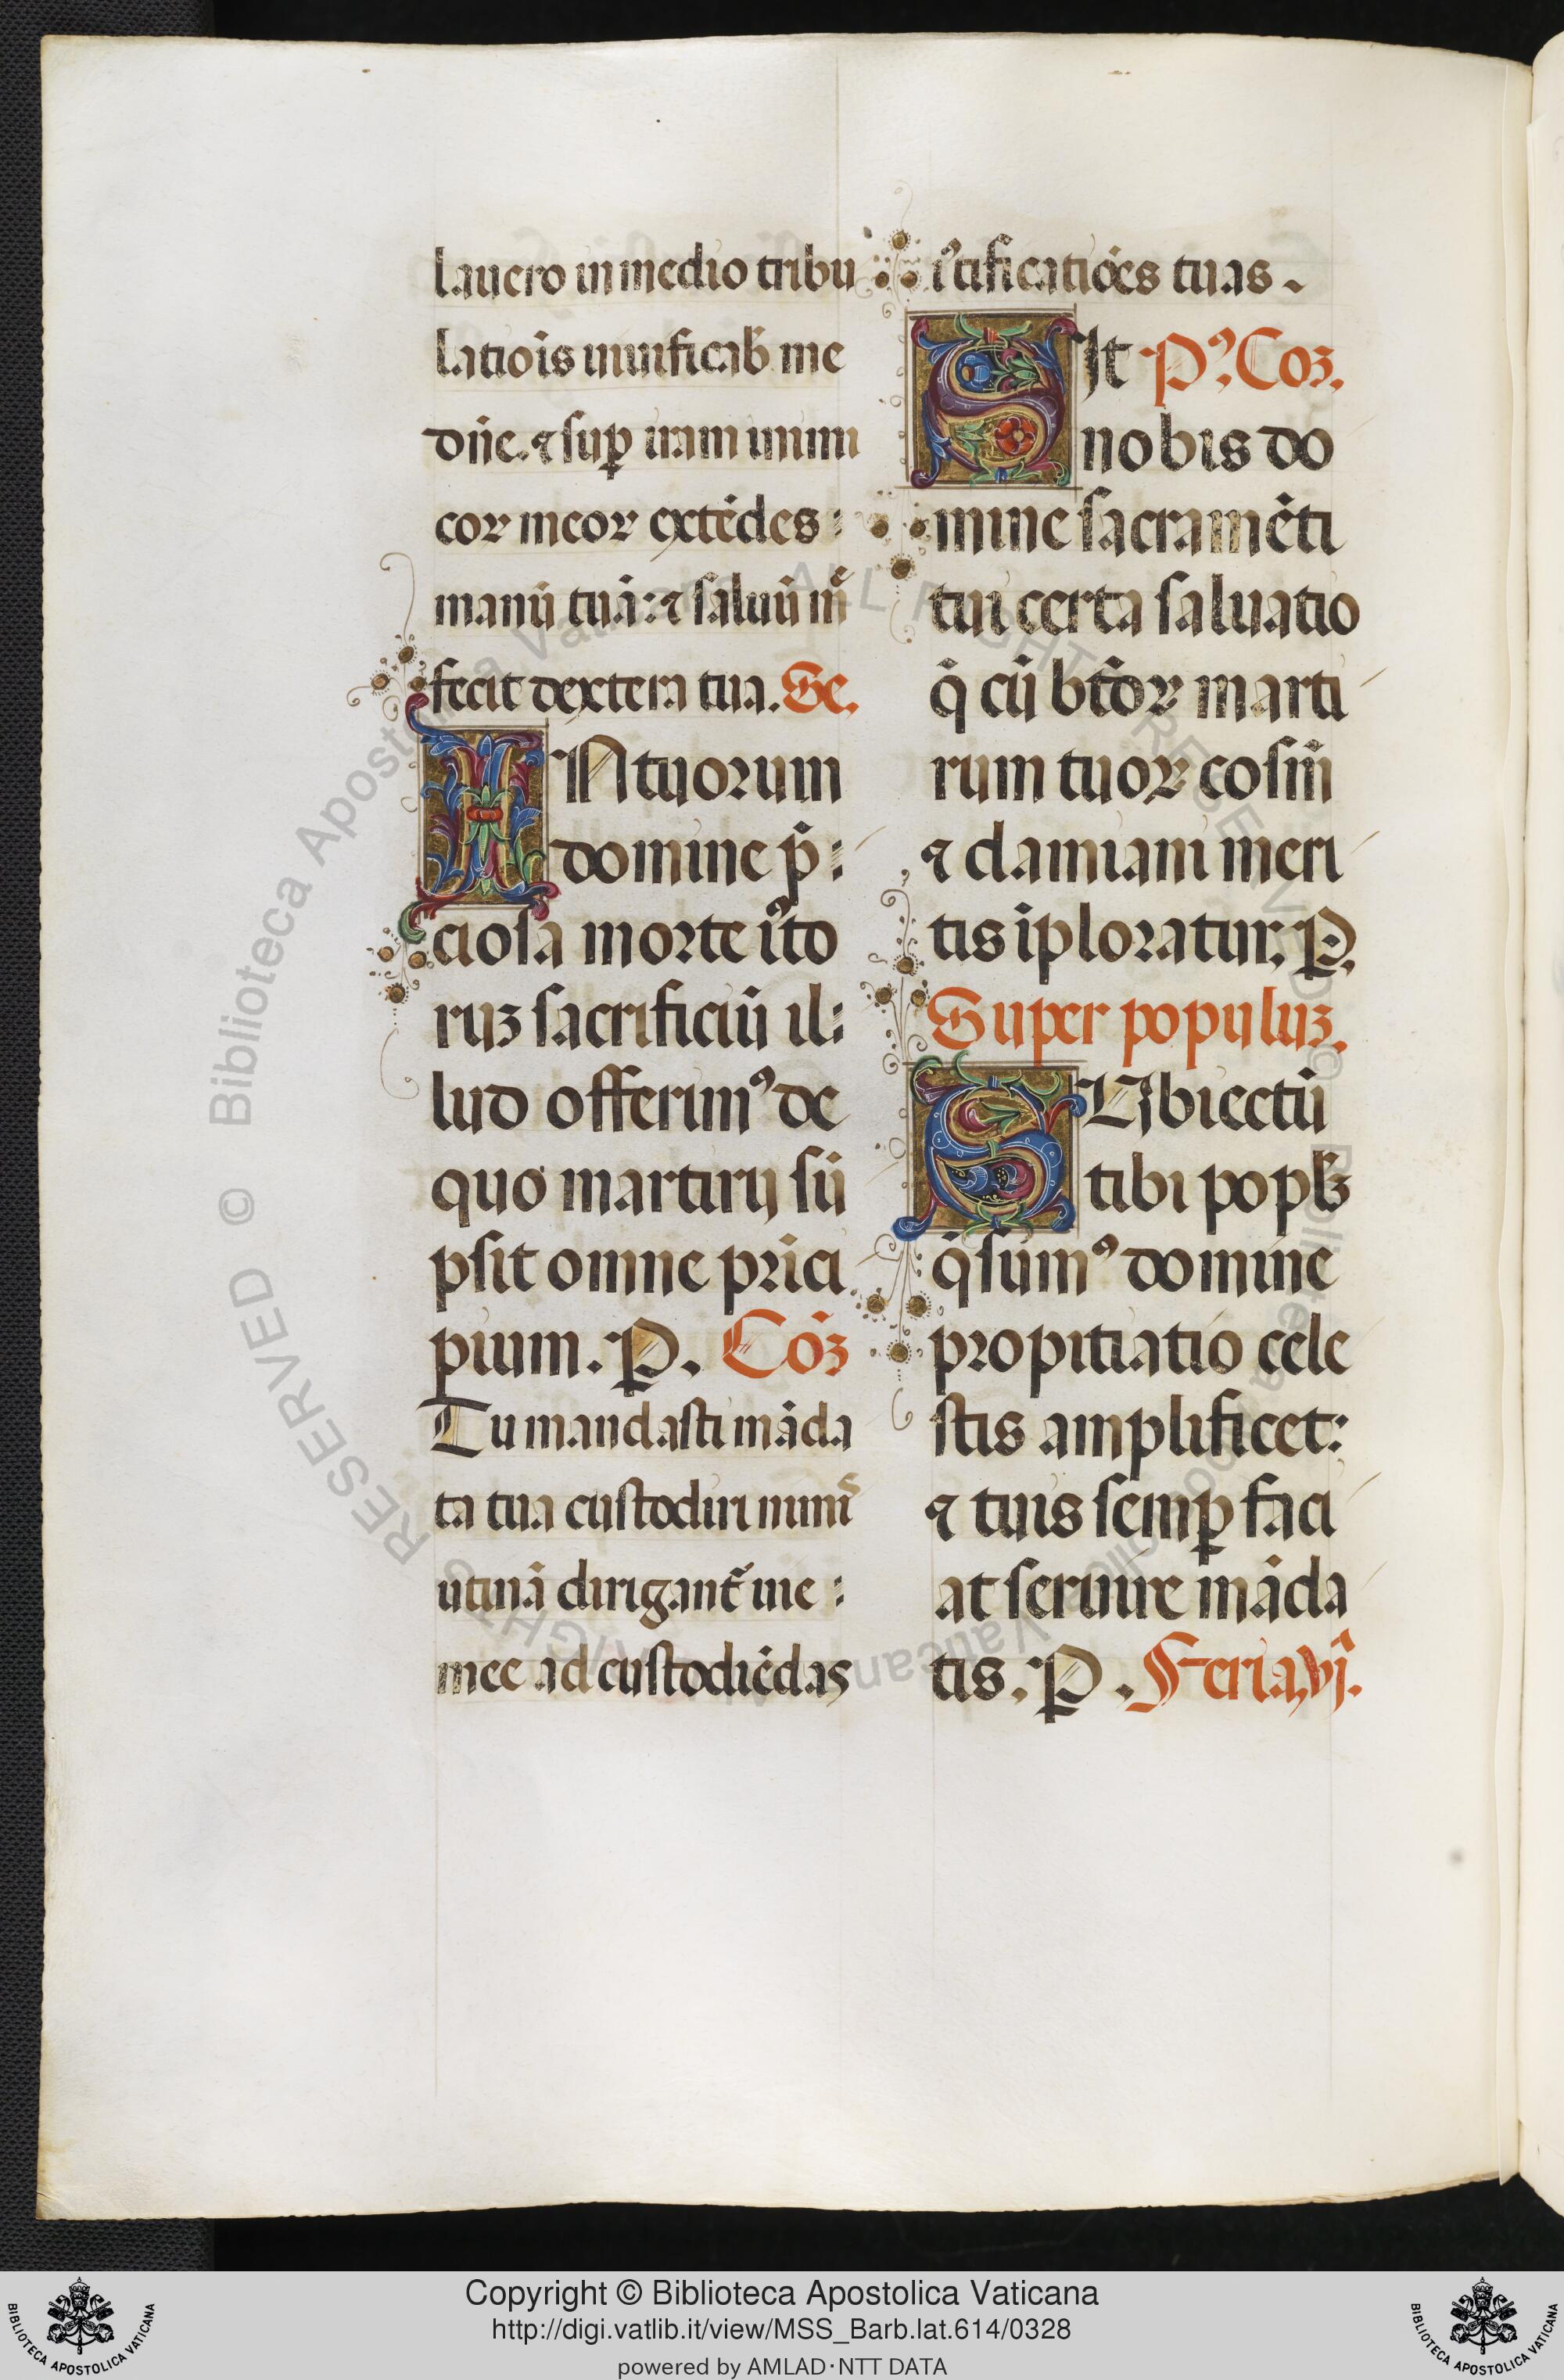 lauero in medio tribu
latiōis uiuificab̄ me
dn̄e. ⁊ suꝑ iram inimi
coꝝ meoꝝ extēdes:
manū tuā: ⁊ saluū m̄
fecit dextera tua. Se.
IN tuorum
domine p̄:
ciosa morte iꝰto
ruꝫ sacrificiū il:
lud offerimꝰ de
quo martirij sū
psit omne prīci
pium. P. Cōꝫ
Tu mandasti māda
ta tua custodiri nimi᷒
utinā dirigant᷑ uie:
mee ad custodiēdas
iꝰtificatiōes tuas.
SIt Pꝰ. Coꝫ.
nobis do
mine sacramēti
tui certa saluatio
q̄ cū btōꝝ marti
rum tuoꝝ cosm̄
⁊ damiani meri
tis īploratur. P.
Super populuꝫ.
SUbiectū
tibi popl᷒
q̄sumꝰ domine
propitiatio cele
stis amplificet:
⁊ tuis semꝑ faci
at seruire māda
tis. P. Feria. vj.
© Biblioteca Apostolica Vaticana ALL RIGHTS RESERVED © Biblioteca Apostolica Vaticana ALL RIGHTS RESERVED
Copyright © Biblioteca Apostolica Vaticana
http://digi.vatlib.it/view/MSS_Barb.lat.614/0328
powered by AMLAD·NTT DATA
BIBLIOTECA APOSTOLICA VATICANA
BIBLIOTECA APOSTOLICA VATICANA